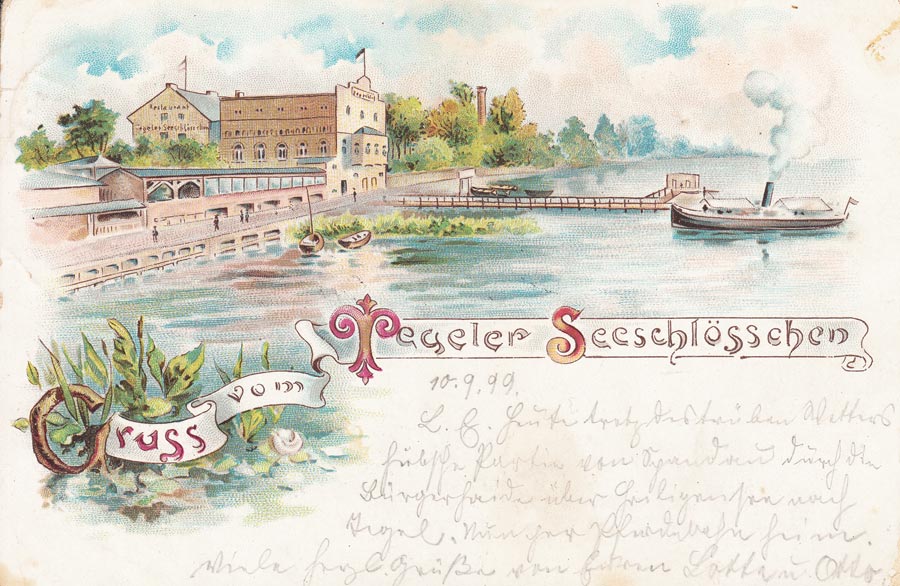 Restaurant
Tegeler Seeschlösschen
Gruss vom Tegeler Seeschlösschen
10.9.99.
L. E. Heute trotz des trüben Wetters
hübsche Partie von Spandau durch die
Bürgerhaide über Heiligensee nach
Tegel. Nun per Pferdebahn heim.
Viele herzl. Grüße von Euren Lotte u. Otto.